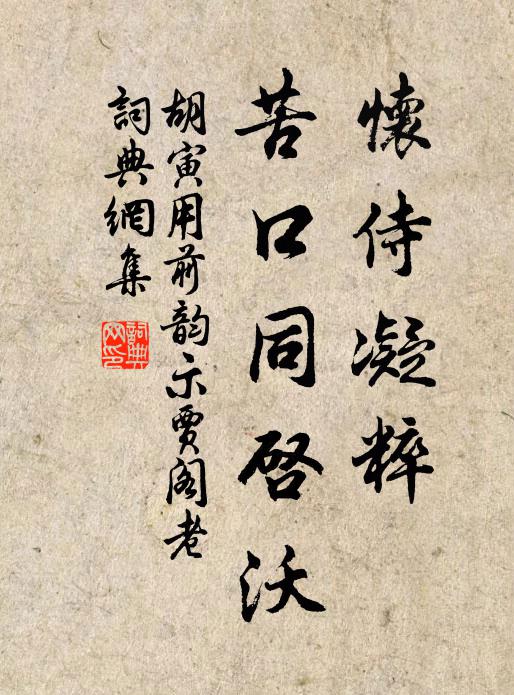 懷侍凝粹
苦口同啓沃
胡寅用前韵示賈阁老
詞典網集
詞典
网印